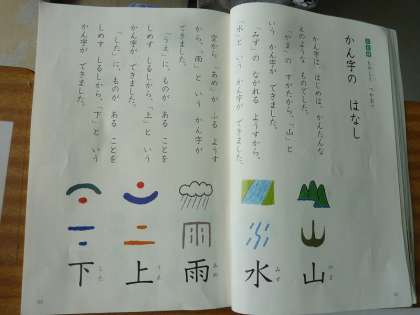 かん字の はなし
かん字は、はじめは、かんたんな
えのような ものでした。
「やま」の すがたから、「山」と
いう かん字が できました。
「みず」の ながれる ようすから、
「水」と いう かん字が できました。
空から、「あめ」が ふる ようす
から、「雨」と いう かん字が
できました。
「うえ」に、ものが ある ことを
しめす しるしから、「上」と いう
かん字が できました。
「した」に、ものが ある ことを
しめす しるしから、「下」と いう
かん字が できました。
山 やま
水 みず
雨 あめ
上 うえ
下 した